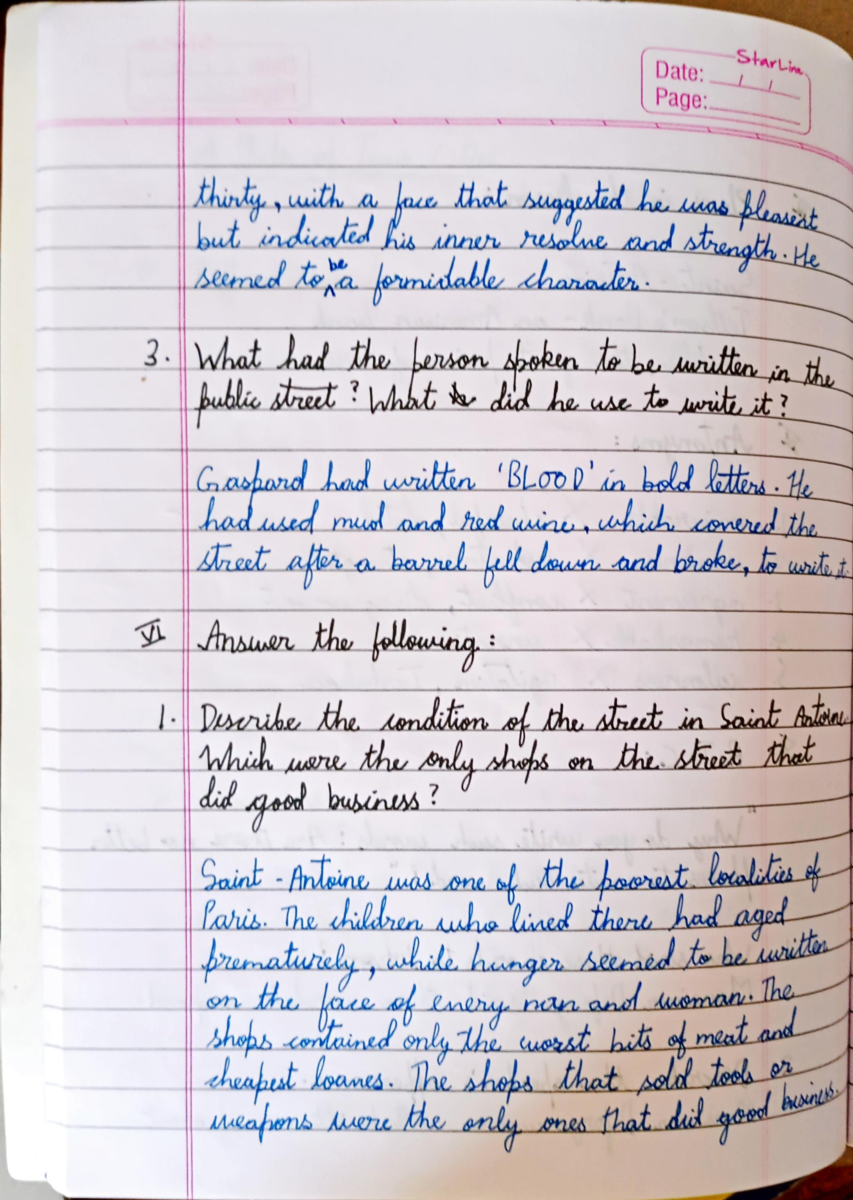 StarLine
Date: / /
Page:
thirty, with a face that suggested he was pleasent
but indicated his inner resolve and strength. He
seemed to be a formidable character.
3. What had the person spoken to be written in the
public street? What did he use to write it?
Gaspard had written 'BLOOD' in bold letters. He
had used mud and red wine, which covered the
street after a barrel fell down and broke, to write it.
VI Answer the following:
1. Describe the condition of the street in Saint Antoine.
Which were the only shops on the street that
did good business?
Saint-Antoine was one of the poorest localities of
Paris. The children who lived there had aged
prematurely, while hunger seemed to be written
on the face of every man and woman. The
shops contained only the worst bits of meat and
cheapest loaves. The shops that sold tools or
weapons were the only ones that did good business.